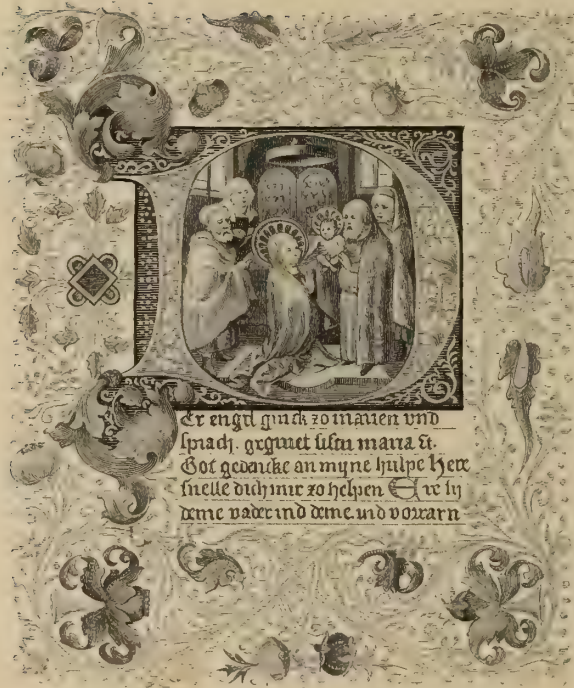 DEr engel ginck zo marien vnd
sprach. gegruet sistu maria &.
Got gedancke an myne hulpe Here
snelle dich mir zo helpen Ere sy
deme vader ind deme. vnd